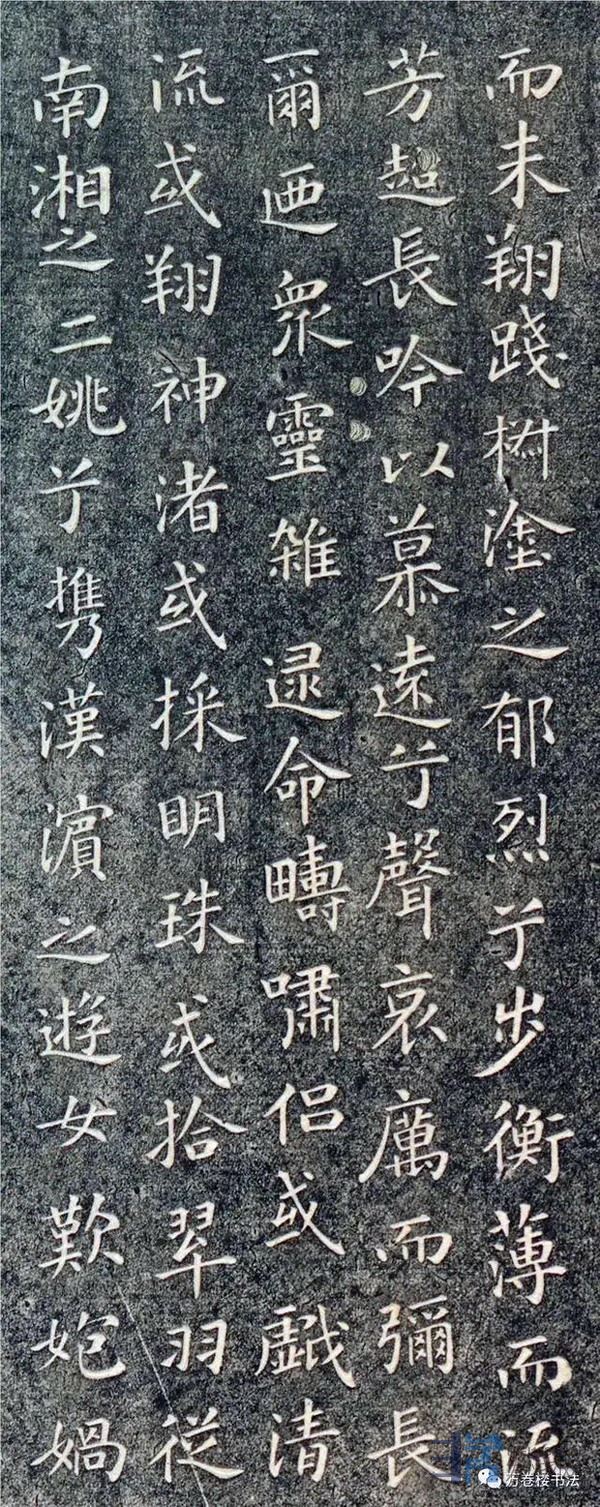 而未翔踐椒塗之郁烈兮步衡薄而流
芳超長吟以慕遠兮聲哀厲而彌長
爾迺衆靈雜遝命疇嘯侶或戲清
流或翔神渚或採明珠或拾翠羽從
南湘之二姚兮携漢濱之遊女歎㚿媧
万卷楼书法